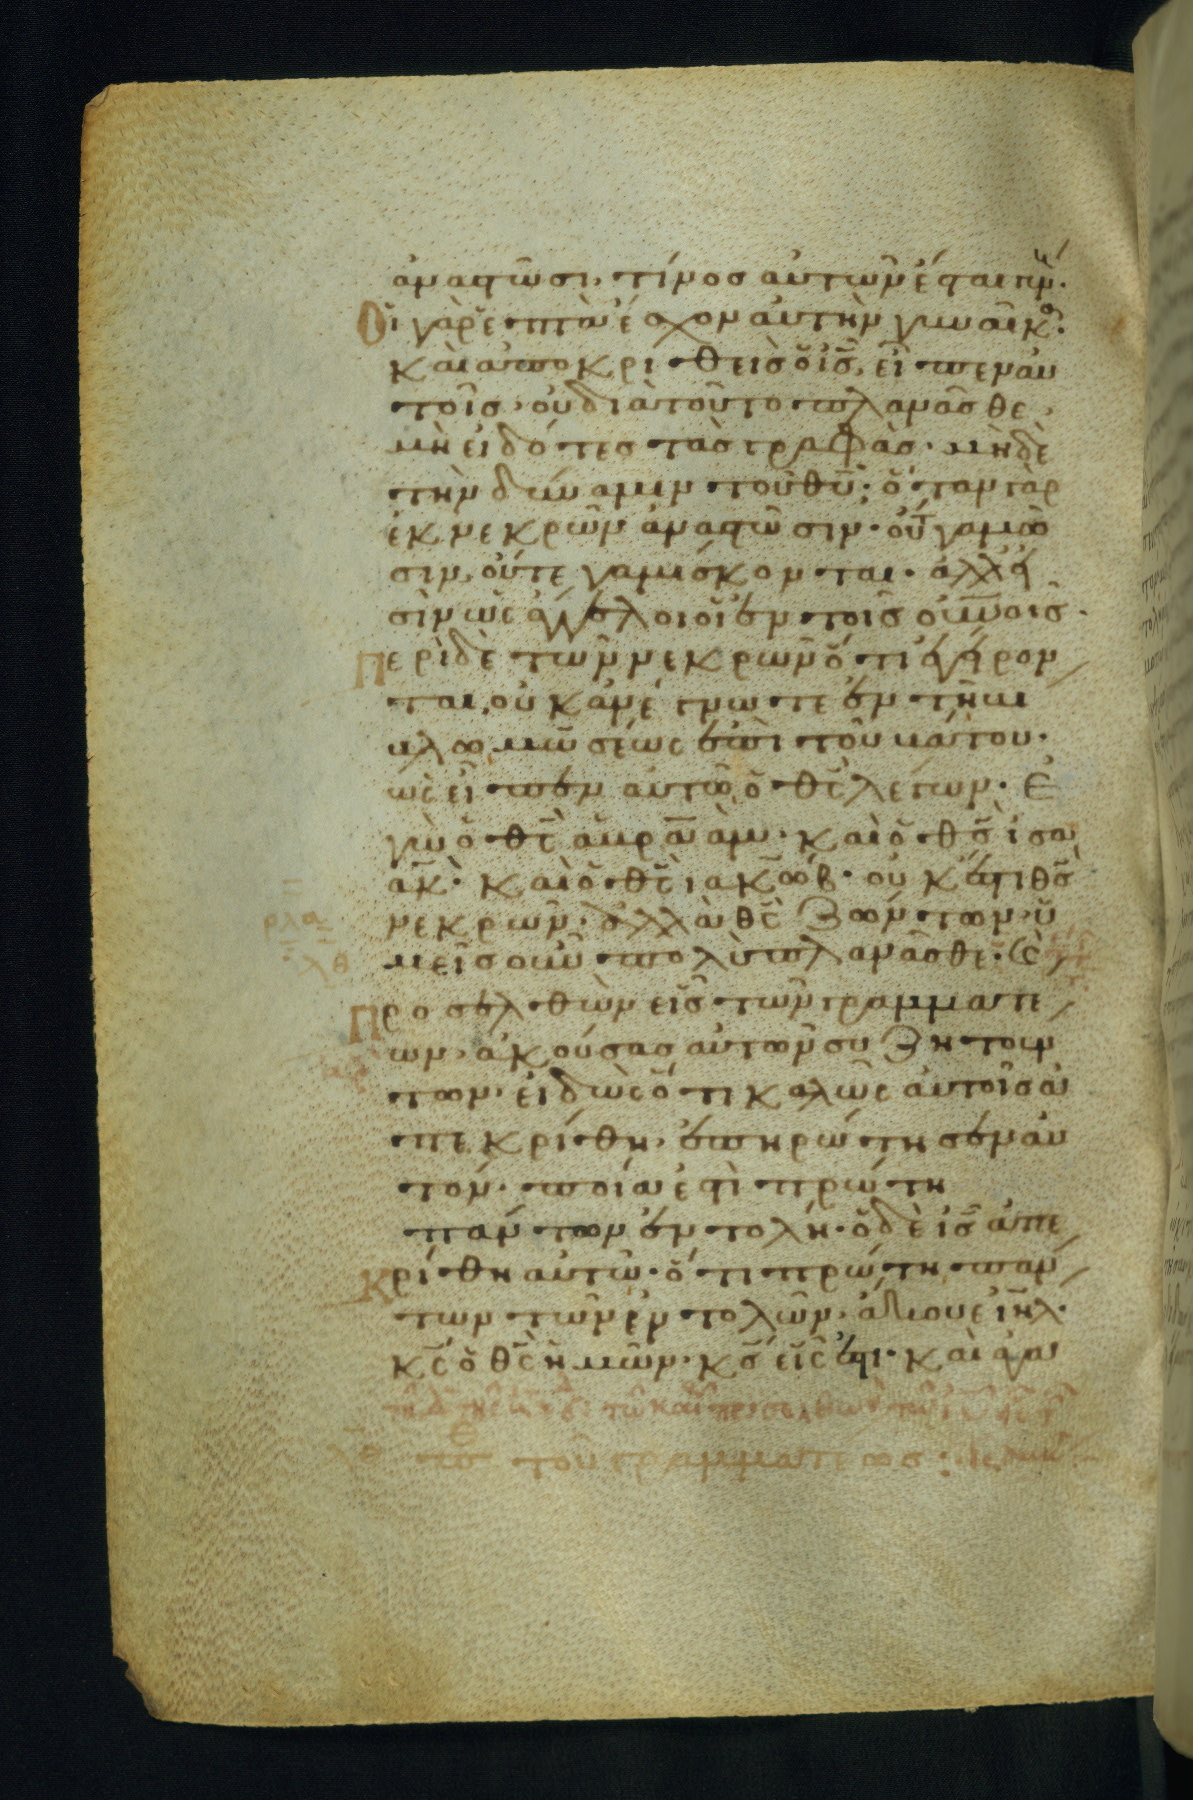 ἀναστῶσι, τίνοσ αὐτῶν ἔσται γυνή·
Οἱ γὰρ ἑπτὰ ἔσχον αὐτὴν γυναῖκα·
Καὶ ἀποκριθεὶσ ὁ ἰσ̅, εἶπεν αὐ
τοῖσ· οὐ διὰ τοῦτο πλανᾶσθε,
μὴ εἰδότεσ τὰσ γραφὰσ· μὴδὲ
τὴν δύναμιν τοῦ θυ̅· ὅταν γὰρ
ἐκ νεκρῶν ἀναστῶσιν· οὔτε γαμοῦ
σιν, οὔτε γαμίσκονται· ἀλλ' εἰ
σὶν ὡσ ἄγγελοι οἱ ἐν τοῖσ οὐνοισ̅·
Περὶ δὲ τῶν νεκρῶν ὅτι ἐγείρον
ται, οὐκ ἀνέγνωτε ἐν τῆ βι
βλω μωσέωσ ἐπὶ τοῦ βάτου·
ὡσ εἶπεν αὐτῶ ὁ θσ̅ λέγων· Ἐ
γὼ ὁ θσ̅ ἀβραὰμ· καὶ ὁ θσ̅ ἰσα
ὰκ· καὶ ὁ θσ̅ ἰακώβ· οὐκ ἔστι θσ̅
νεκρῶν· ἀλλὰ θσ̅ ζώντων· ὑ
μεῖσ οὖν πολὺ πλανᾶσθε· Καὶ
ρλα
λθ
Προσελθὼν εἷσ τῶν γραμματέ
ων, ἀκούσασ αὐτῶν συζητούν
των, εἰδὼσ ὅτι καλῶσ αὐτοῖσ ἀ
πεκρίθη, ἐπηρώτησεν αὐ
τόν· ποία ἐστὶ πρώτη
πάντων ἐντολή· ὁ δὲ ἰσ̅ ἀπε
Κρίθη αὐτῶ· ὅτι πρώτη παν
των τῶν ἐντολῶν, ἄκουε ἰηλ̅·
κσ̅ ὁ θσ̅ ἡμῶν· κσ̅ εἷσ ἐστι· καὶ ἀγα
τοῦ γραμματέωσ: